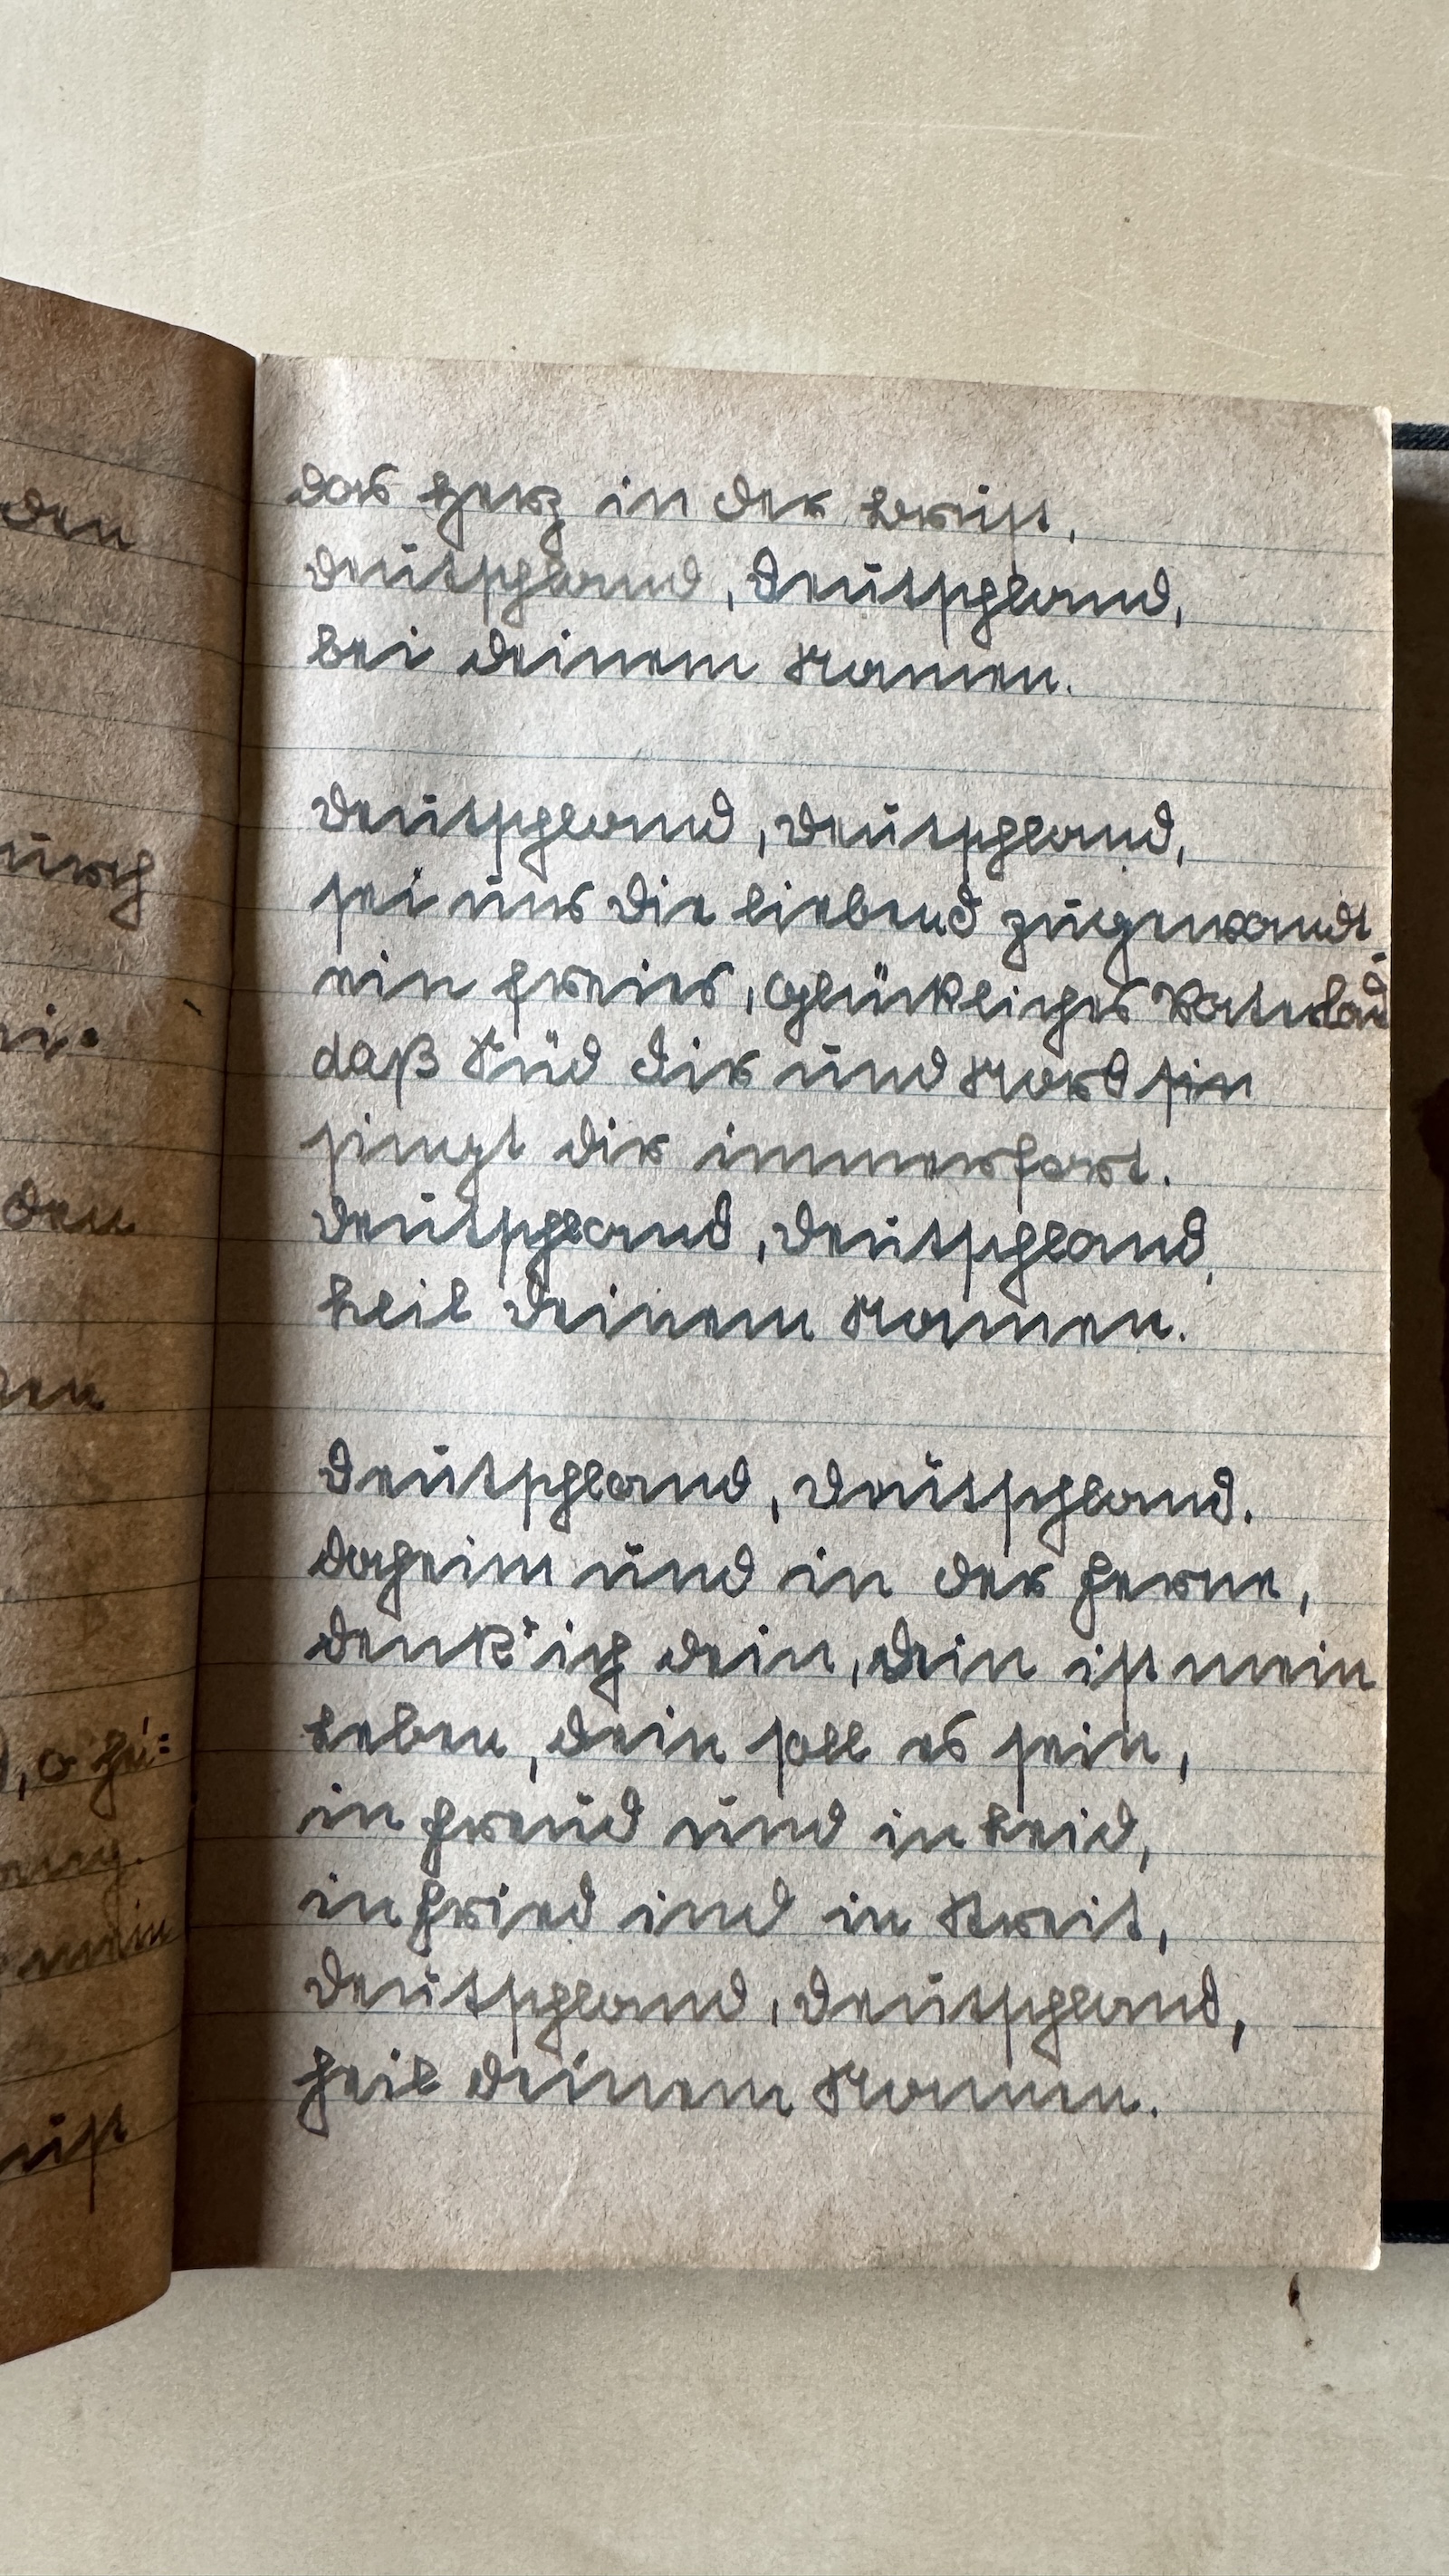 den
das Herz in der Brust,
Deutschland, Deutschland,
bei deinem Namen.
Deutschland, Deutschland,
sei uns die liebend zugewandt
ein freies, glückliches Vaterland
daß Süd dir und Nord sin
singt dir immerfort.
Deutschland, Deutschland,
heil deinem Namen.
Deutschland, Deutschland.
daheim und in der Ferne,
denk' ich dein, dein ist mein
Leben, dein soll es sein,
in Freud und in Leid,
in Fried ind in Streit,
Deutschland, Deutschland,
Heil deinem Namen.
den